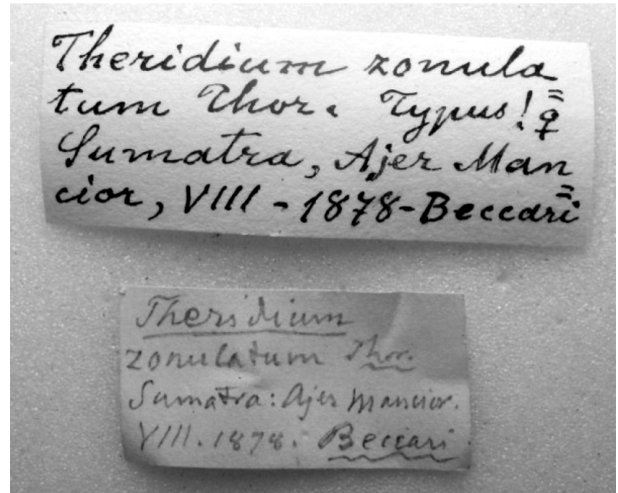 Theridium zonula=
tum Thor. Typus! ♀
Sumatra, Ajer Man=
cior, VIII - 1878 - Beccari
Theridium
zonulatum Thor.
Sumatra: Ajer Mancior.
VIII. 1878. Beccari